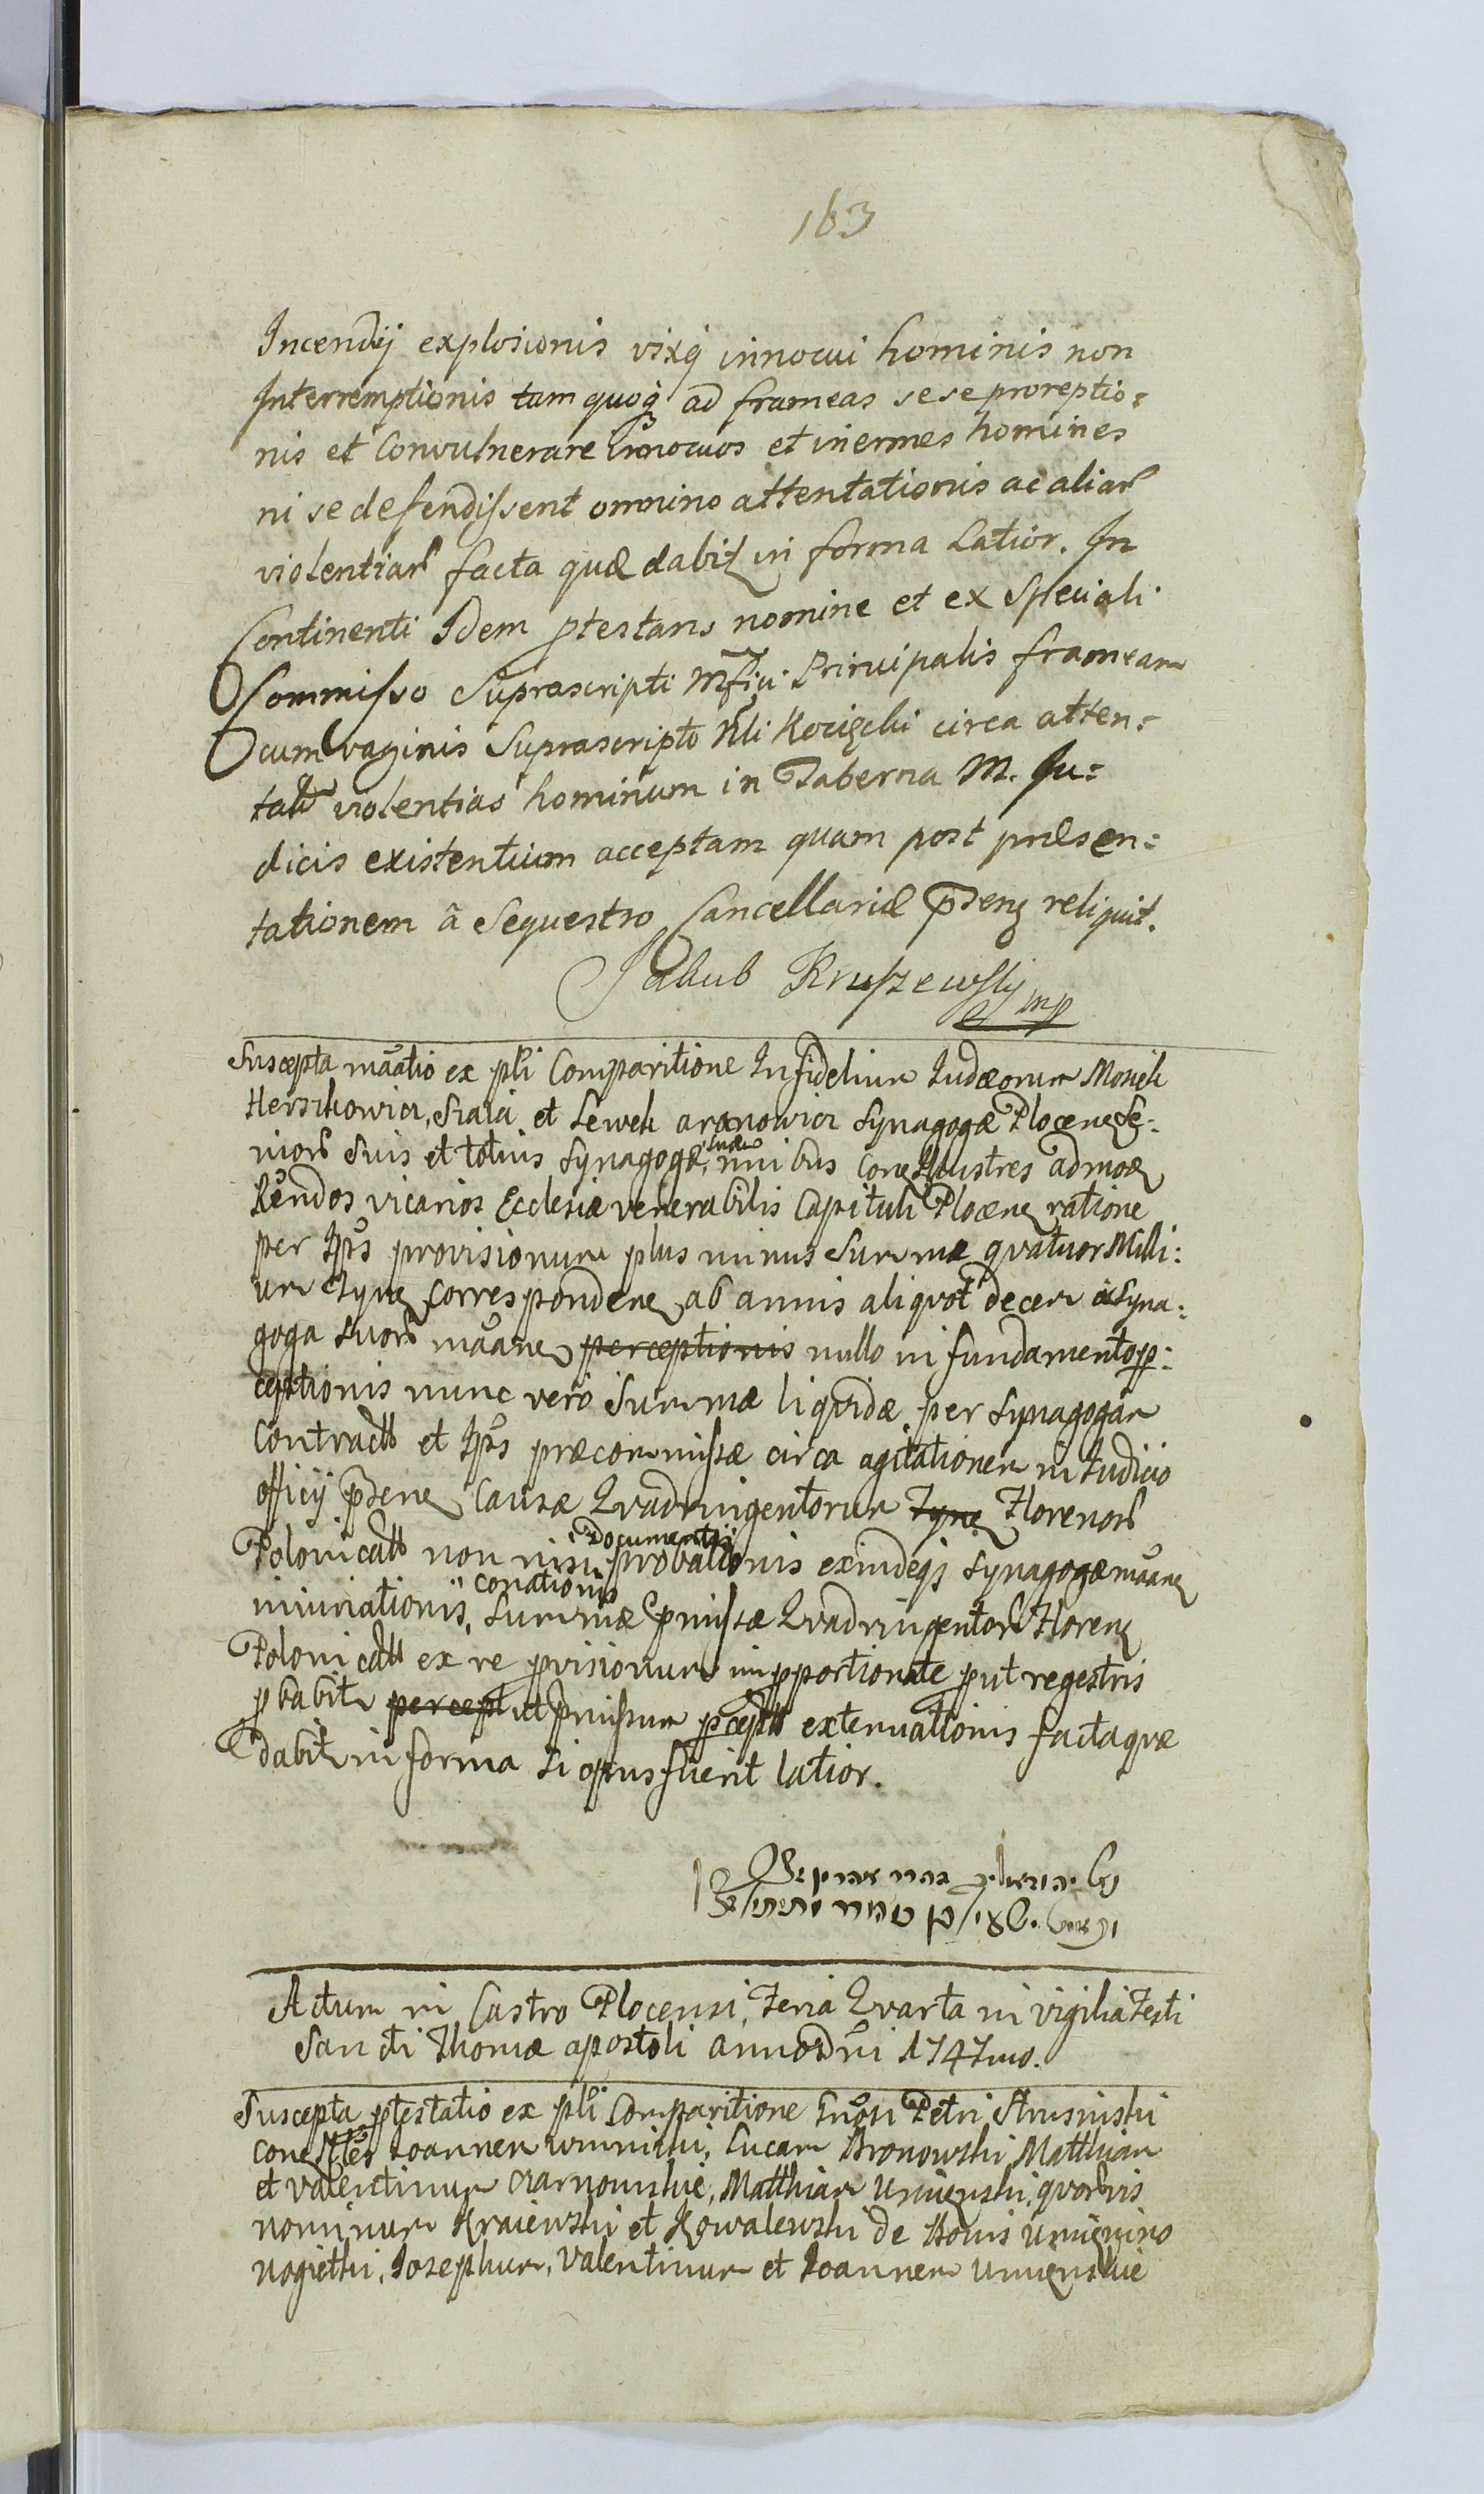 163
Incendij explosionis vixq innocui hominis non
Interremptionis tam quoq ad frameas sese proreptio:
nis et Convulnerare innocuos et inermes homines
ni se defendissent omnino attentationis ac aliar
violentiar facta quæ dabit in forma Latior. In
Continenti Idem ptestans nomine et ex Speciali
Commisso Suprascripti Mfici Principalis frameam
cum vaginis Suprascripto Nli circa atten:
tatas violentias hominum in Taberna M. Ju:
dicis existentium acceptam quam post præsen:
tationem â Sequestro Cancellariæ pdens reliquit.
Jakub Kruszewsky mp
Suscepta mãatio ex pli Comparitione Infidelium Judæorum Mosiek
Herszkowicz, et Lewek aronowicz Synagogæ Plocens Se:
nior Suis et totius Synagogæ nnibus Illustres admo
Rendos vicarios Ecclesiæ venerabilis Capituli Plocens ratione
per Ipos provisionum plus minus Summæ quatuor Milli:
um correspondens ab annis aliquot decem à Syna:
goga Suor mãans perceptionis nullo in fundamento p:
ceptionis nunc vero Summæ liquidæ per Synagogam
Contractæ et Ipos præcommissæ circa agitationem in Judicio
officij pdens Causæ Quadringentorum Florenor
Polonicalium non nisi Documentis probationis exindeq Synagogæ mãans
iniuriationis, conationis Summæ pmissæ Quadringentor Florens
Polonicalium ex re provisionum impportionate put regestris
pbabit percept ut pmissum pceptæ extenuationis facta quæ
dabit in forma si opus fuerit latior.
Actum in Castro Plocensi, Feria Quarta in vigilia Festi
Sancti Thomæ apostoli anno Dni 1747mo.
Suscepta ptestatio ex pli Comparitione Gnosi Petri
Joannem Lucam Bronowski Matthiam
et valentinum Czarnomskie, Matthiam Umienski, quorvis
nominum Kraiewski et Kowalewski de Bonis Umienino
Josephum, Valentinum et Joannem Umienskie